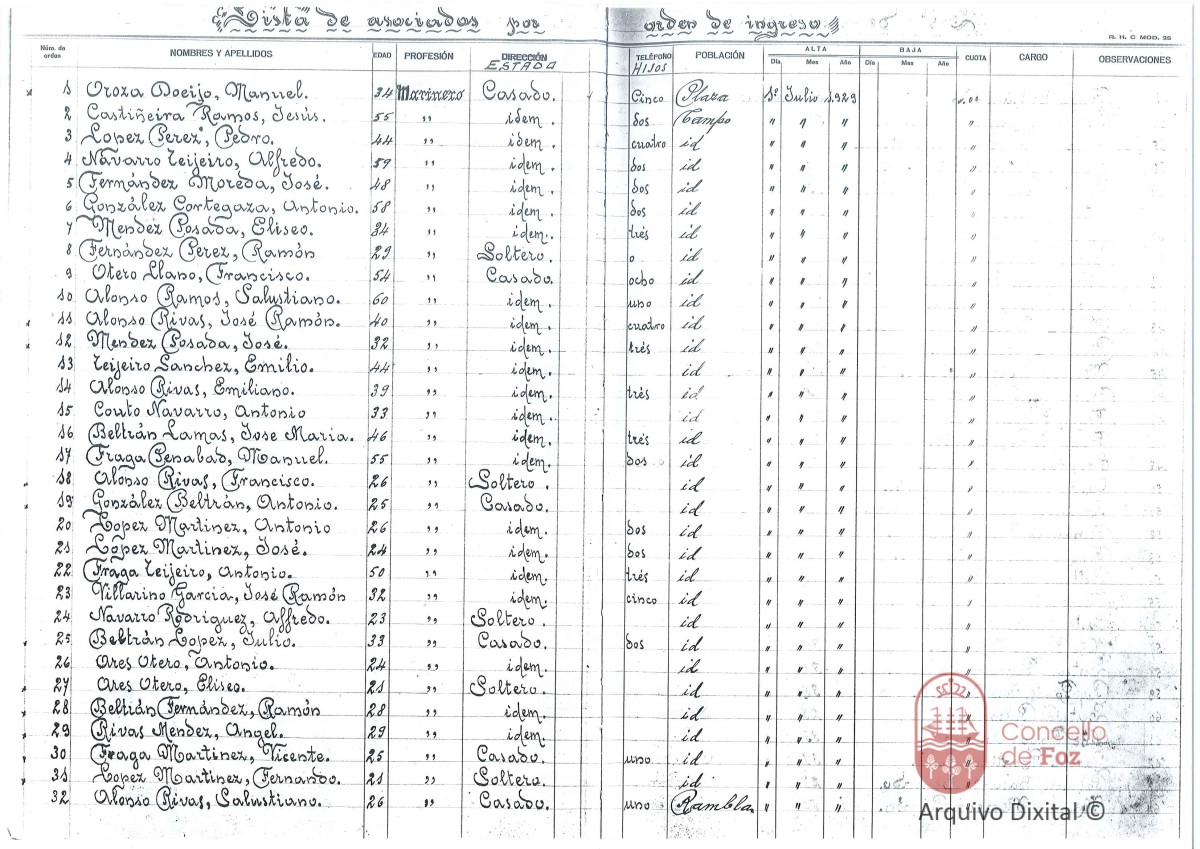 Lista de asociados por orden de ingreso
R. H. C MOD. 25
Núm. de orden NOMBRES Y APELLIDOS EDAD PROFESIÓN DIRECCIÓN ESTADO TELÉFONO HIJOS POBLACIÓN ALTA Día Mes Año BAJA Día Mes Año CUOTA CARGO OBSERVACIONES
1 Oroza Doeijo, Manuel. 34 Marinero Casado. Cinco Plaza 1º Julio 1.929
2 Castiñeira Ramos, Jesús. 55 " idem. dos Campo " " " "
3 Lopez Perez, Pedro. 44 " idem. cuatro id " " " "
4 Navarro Teijeiro, Alfredo. 59 " idem. dos id " " " "
5 Fernández Moreda, José. 48 " idem. dos id " " " "
6 González Cortegaza, Antonio. 58 " idem. dos id " " " "
7 Mendez Posada, Eliseo. 34 " idem. trés id " " " "
8 Fernández Perez, Ramón 29 " Soltero. o id " " " "
9 Otero Llano, Francisco. 54 " Casado. ocho id " " " "
10 Alonso Ramos, Salustiano. 60 " idem. uno id " " " "
11 Alonso Rivas, José Ramón. 40 " idem. cuatro id " " " "
12 Mendez Posada, José. 32 " idem. trés id " " " "
13 Teijeiro Sanchez, Emilio. 44 " idem. id " " " "
14 Alonso Rivas, Emiliano. 39 " idem. trés id " " " "
15 Couto Navarro, Antonio 33 " idem. id " " " "
16 Beltrán Lamas, Jose Maria. 46 " idem. trés id " " " "
17 Fraga Penabad, Manuel. 55 " idem. dos id " " " "
18 Alonso Rivas, Francisco. 26 " Soltero. id " " " "
19 González Beltrán, Antonio. 25 " Casado. id " " " "
20 Lopez Martinez, Antonio 26 " idem. dos id " " " "
21 Lopez Martinez, José. 24 " idem. dos id " " " "
22 Fraga Teijeiro, Antonio. 50 " idem. trés id " " " "
23 Villarino Garcia, José Ramón 32 " idem. cinco id " " " "
24 Navarro Rodriguez, Alfredo. 23 " Soltero. id " " " "
25 Beltrán Lopez, Julio. 33 " Casado. dos id " " " "
26 Ares Otero, Antonio. 24 " idem. id " " " "
27 Ares Otero, Eliseo. 21 " Soltero. id " " " "
28 Beltrán Fernández, Ramón 28 " idem. id " " "
29 Rivas Mendez, Angel. 29 " idem. id " " "
30 Fraga Martinez, Vicente. 25 " Casado. uno id " " "
31 Lopez Martinez, Fernando. 21 " Soltero. id " " "
32 Alonso Rivas, Salustiano. 26 " Casado. uno Rambla " " "
Concello de Foz
Arquivo Dixital ©